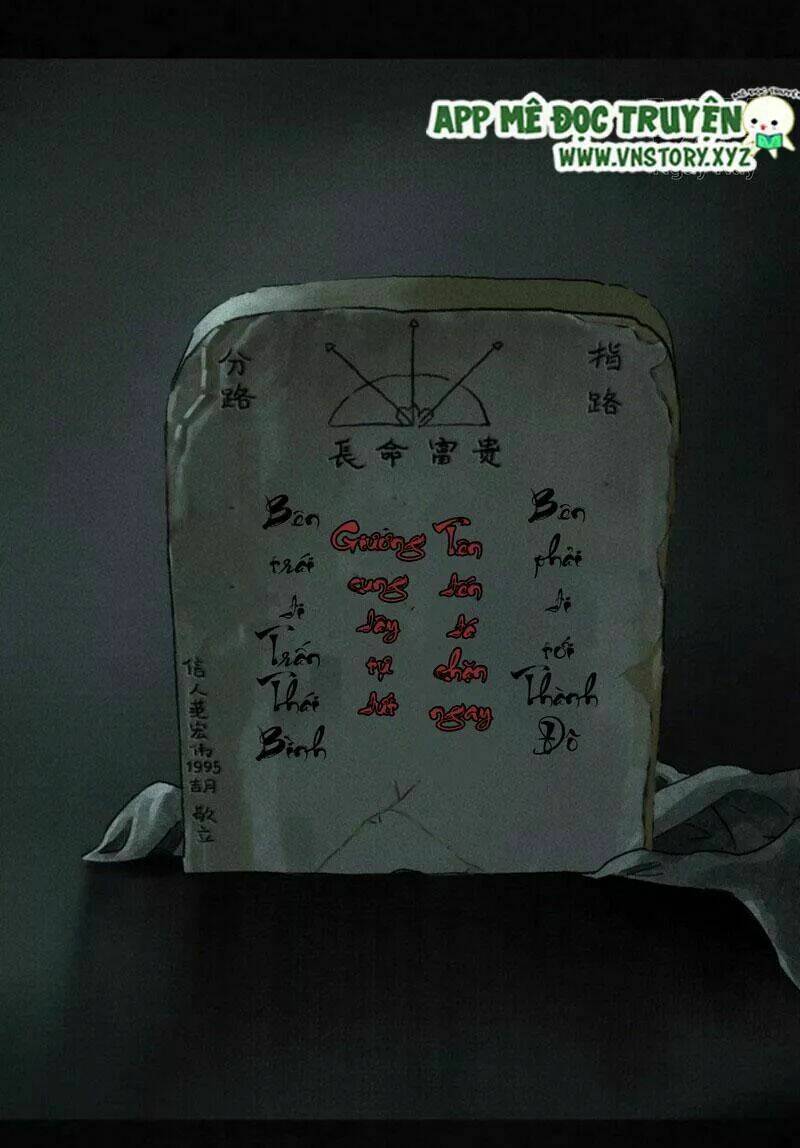 MÊ ĐỌC TRUYỆN
APP MÊ ĐỌC TRUYỆN
WWW.VNSTORY.XYZ
分路
指路
長命富貴
Bên trái đi Trấn Thái Bình
Giương cung dây tự đứt
Tên bắn đá chặn ngay
Bên phải đi tới Thành Đô
信人范宏伟
1995
胡 敬立